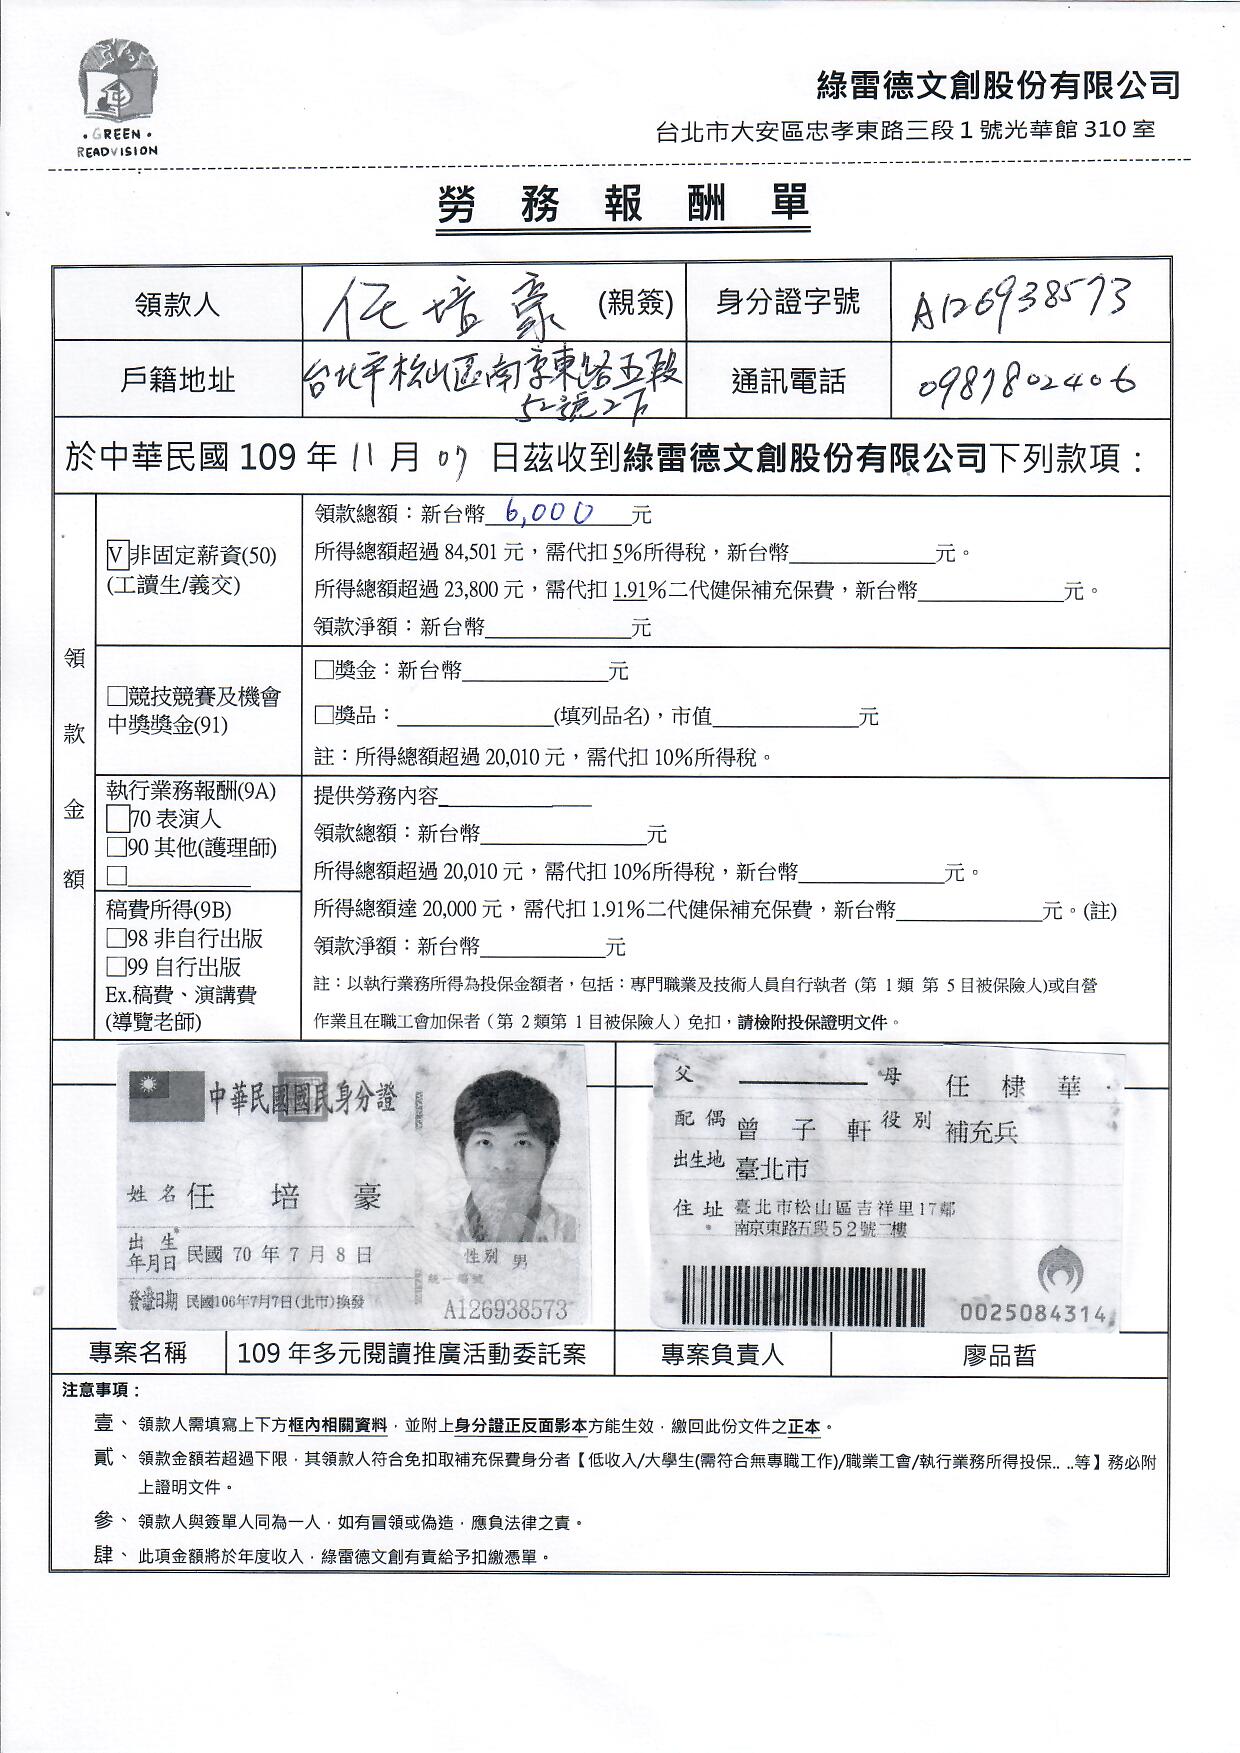 GREEN
READVISION
綠雷德文創股份有限公司
台北市大安區忠孝東路三段1號光華館310室
勞務報酬單
領款人 任培豪 (親簽) 身分證字號 A126938573
戶籍地址 台北市松山區南京東路五段52號2F 通訊電話 0987802406
於中華民國 109 年 11 月 07 日茲收到綠雷德文創股份有限公司下列款項：
領款金額
V 非固定薪資(50)
(工讀生/義交)
領款總額：新台幣 6,000 元
所得總額超過 84,501 元，需代扣 5%所得稅，新台幣____元。
所得總額超過 23,800 元，需代扣 1.91%二代健保補充保費，新台幣____元。
領款淨額：新台幣____元
□競技競賽及機會
中獎獎金(91)
□獎金：新台幣____元
□獎品：____(填列品名)，市值____元
註：所得總額超過 20,010 元，需代扣 10%所得稅。
執行業務報酬(9A)
□70 表演人
□90 其他(護理師)
□____
稿費所得(9B)
□98 非自行出版
□99 自行出版
Ex.稿費、演講費
(導覽老師)
提供勞務內容____
領款總額：新台幣____元
所得總額超過 20,010 元，需代扣 10%所得稅，新台幣____元。
所得總額達 20,000 元，需代扣 1.91%二代健保補充保費，新台幣____元。(註)
領款淨額：新台幣____元
註：以執行業務所得為投保金額者，包括：專門職業及技術人員自行執者 (第 1 類 第 5 目被保險人)或自營
作業且在職工會加保者（第 2 類第 1 目被保險人）免扣，請檢附投保證明文件。
中華民國國民身分證
姓名 任培豪
出生年月日 民國 70 年 7 月 8 日
性別 男
發證日期 民國106年7月7日(北市)換發
統一編號
A126938573
父 母 任棣華
配偶 曾子軒 役別 補充兵
出生地 臺北市
住址 臺北市松山區吉祥里17鄰
南京東路五段52號二樓
0025084314
專案名稱 109 年多元閱讀推廣活動委託案 專案負責人 廖品晢
注意事項：
壹、領款人需填寫上下方框內相關資料，並附上身分證正反面影本方能生效，繳回此份文件之正本。
貳、領款金額若超過下限，其領款人符合免扣取補充保費身分者【低收入/大學生(需符合無專職工作)/職業工會/執行業務所得投保.. ..等】務必附
上證明文件。
參、領款人與簽單人同為一人，如有冒領或偽造，應負法律之責。
肆、此項金額將於年度收入，綠雷德文創有責給予扣繳憑單。